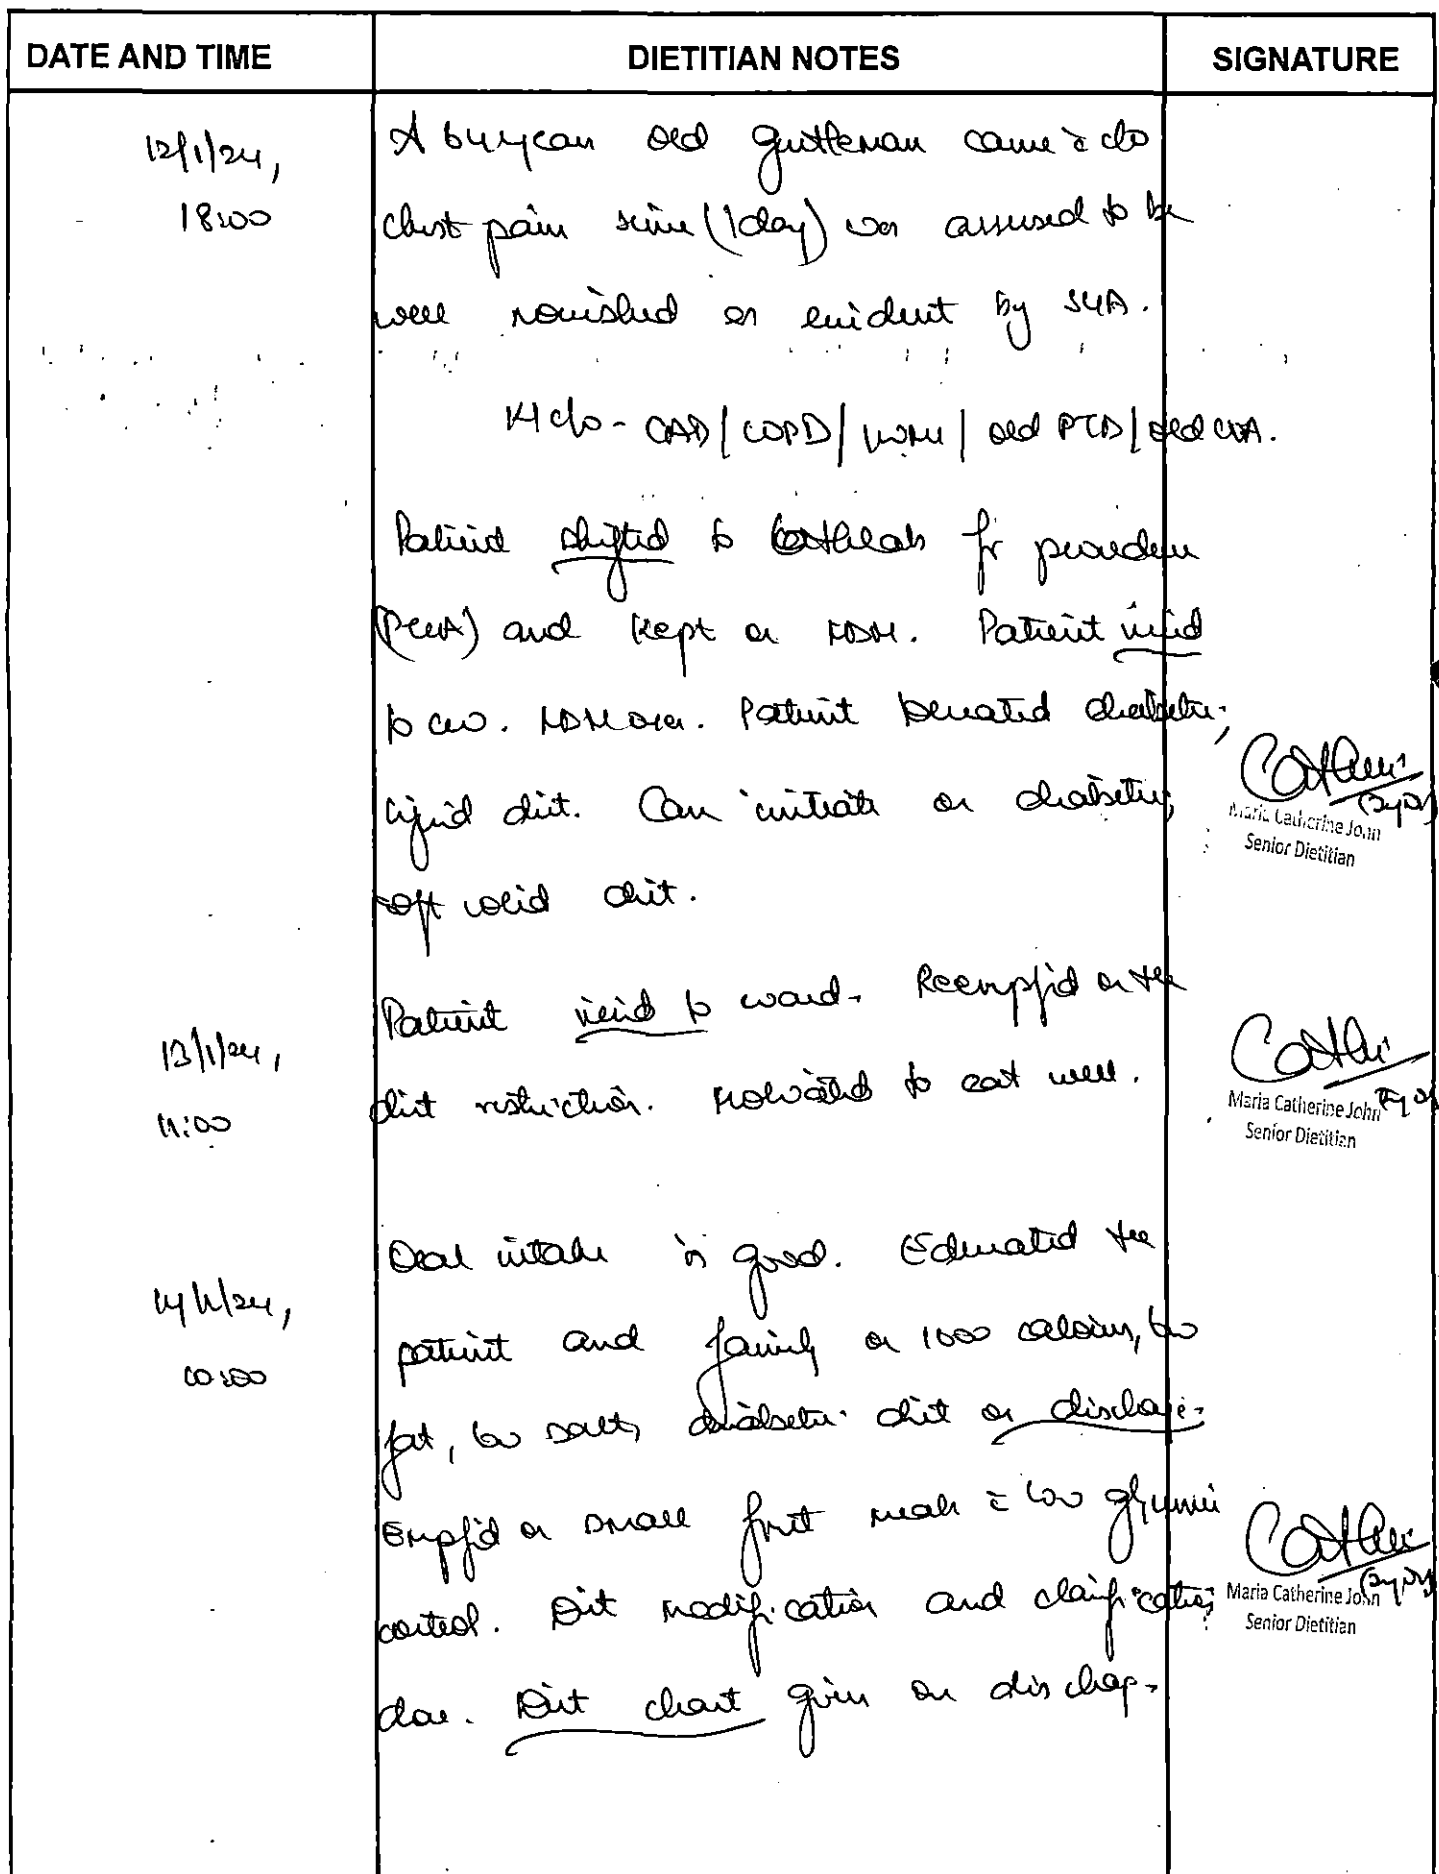 DATE AND TIME DIETITIAN NOTES SIGNATURE
12/1/24, A 64 year old gentleman came c̄ c/o
18:00 chest pain since (1day) was assessed to be
well nourished as evident by SGA.
K/c/o - CAD/COPD/ / old PTCA/old CVA.
Patient shifted to cathlab for procedure
and kept on NBM. Patient
to NBM over. Patient tolerated diabetic,
liquid diet. Can initiate on diabetic,
soft solid diet.
Maria Catherine John
Senior Dietitian
13/1/24, Patient to ward. on the
11:00 diet restriction. Motivated to eat well.
Maria Catherine John
Senior Dietitian
14/1/24, Oral intake is good. Educated the
10:00 patient and family on calories, low
fat, low salt, diabetic diet on discharge.
on small meals c̄ low glycemic
control. Diet modification and clarification
Maria Catherine John
Senior Dietitian
done. Diet chart given on discharge.